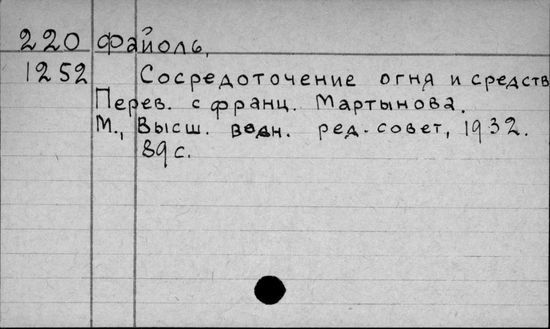 220 Файоль,
1252 Сосредоточение огня и средств
Перев. с франц. Мартынова.
М., Высш. воен. ред. совет, 1932.
89 с.